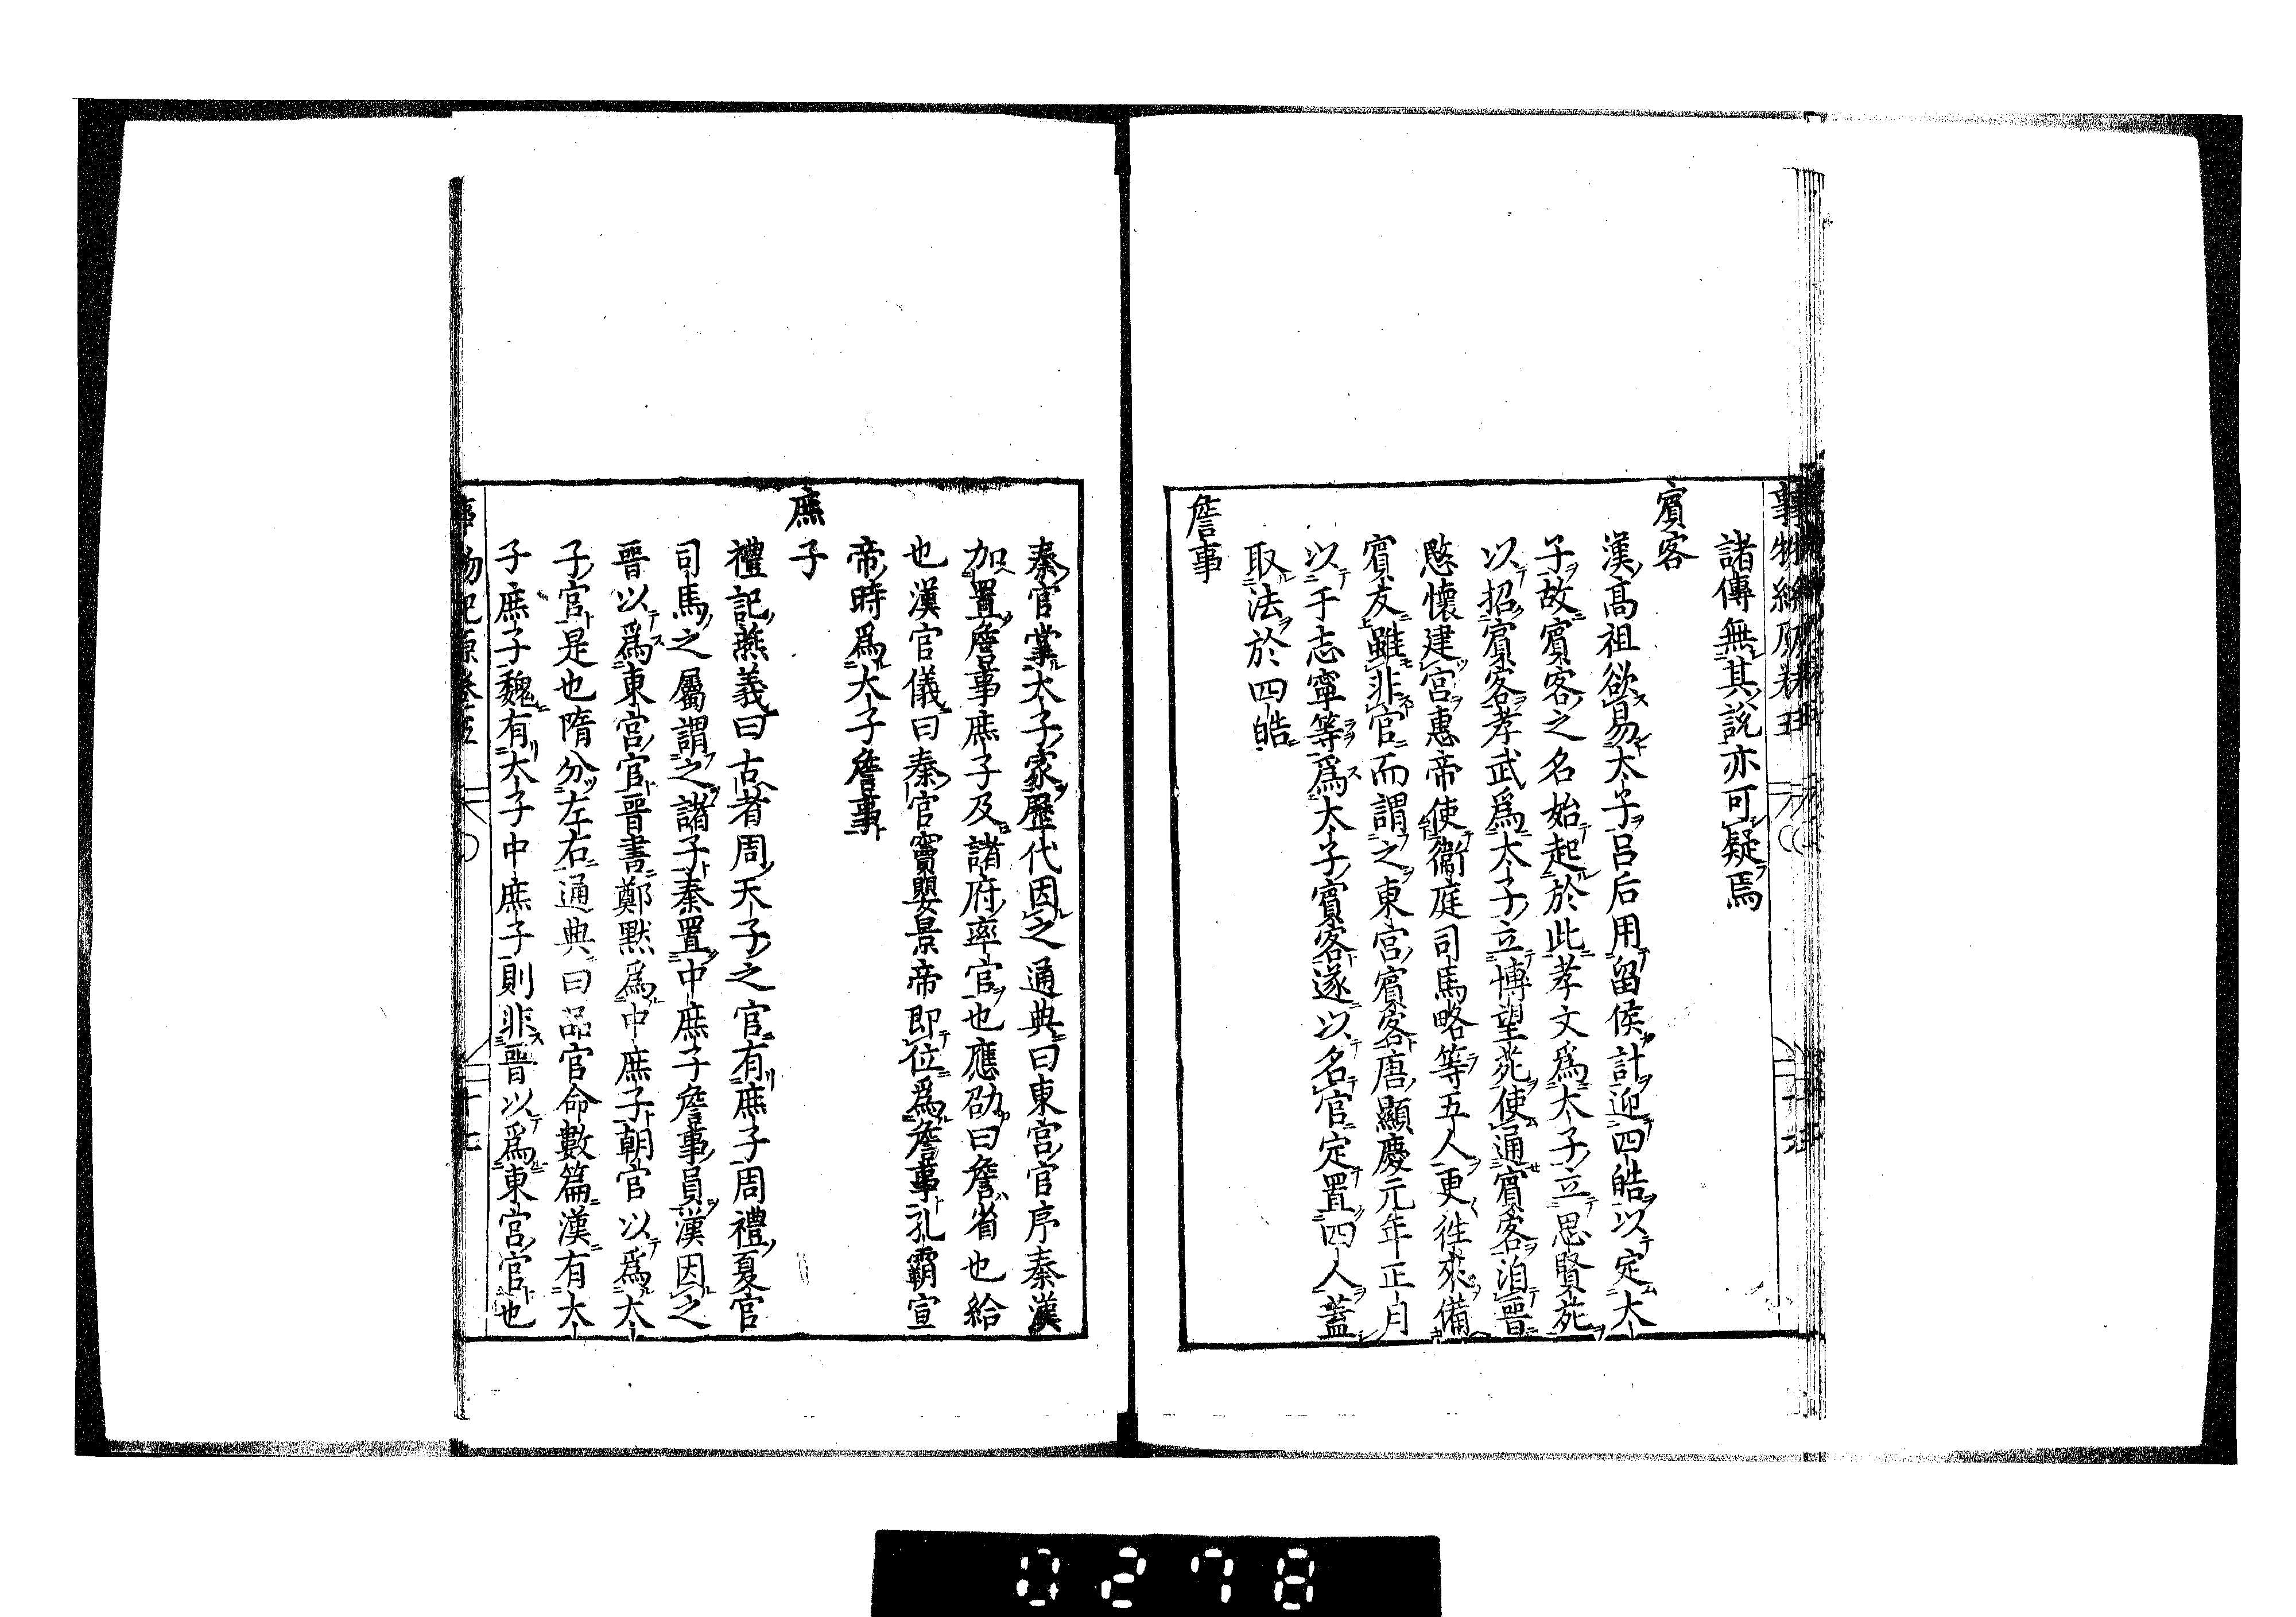 諸傳無其說亦可疑焉
賓客
漢髙祖欲易太子呂后用留侯計迎四皓以定太
子故賓客之名始起於此孝文爲太子立思賢苑
以招賓客孝武爲太子立博望苑使通賓客洎晉
愍懷建宮惠帝使衞庭司馬略等五人更徃來備
賓友雖非官而謂之東宮賓客唐顯慶元年正月
以于志寧等爲太子賓客遂以名官定置四人蓋
取法於四皓
詹事
秦官掌太子家歷代因之通典曰東宮官序秦漢
加置詹事庶子及諸府率官也應劭曰詹省也給
也漢官儀曰秦官竇嬰景帝即位爲詹事孔霸宣
帝時爲太子詹事
庶子
禮記燕義曰古者周天子之官有庶子周禮夏官
司馬之屬謂之諸子秦置中庶子詹事員漢因之
晉以爲東宮官晉書鄭默爲中庶子朝官以爲太
子官是也隋分左右通典曰品官命數篇漢有太
子庶子魏有太子中庶子則非晉以爲東宮官也
事物紀原卷五 十七